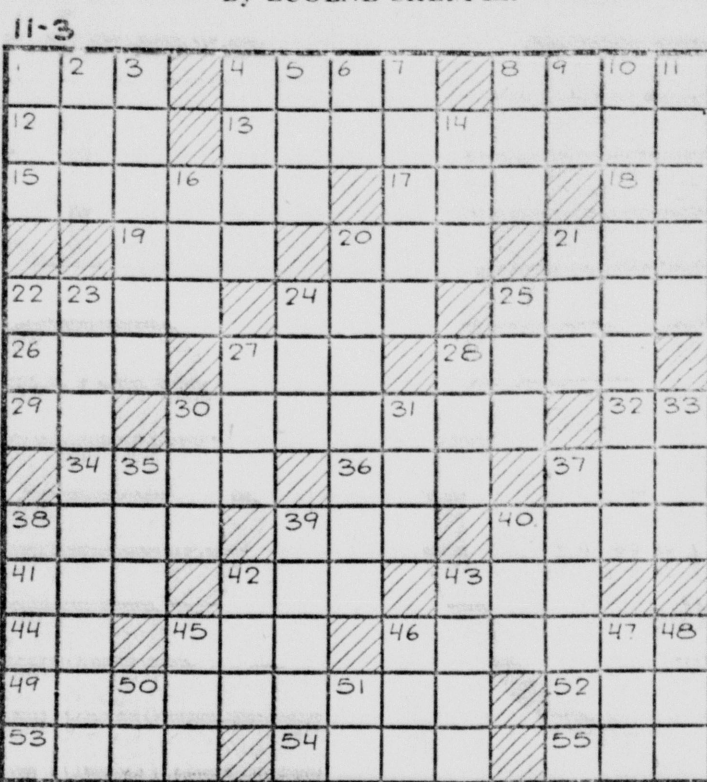 11-3
1 2 3 4 5 6 7 8 9 10 11
12 13 14
15 16 17 18
19 20 21
22 23 24 25
26 27 28
29 30 31 32 33
34 35 36 37
38 39 40
41 42 43
44 45 46 47 48
49 50 51 52
53 54 55